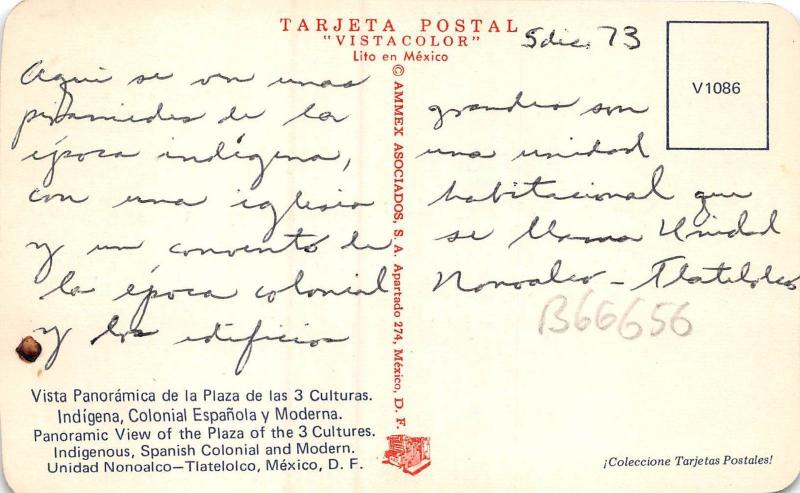 TARJETA POSTAL
"VISTACOLOR"
Lito en México
5 dic. 73
V1086
Aqui se ven unas
pirámides de la
época indígena,
con una iglesia
y un convento de
la época colonial
y los edificios
grandes son
una unidad
habitacional que
se llama Unidad
Nonoalco - Tlatelolco
B66656
© AMMEX ASOCIADOS, S. A. Apartado 274, México, D. F.
Vista Panorámica de la Plaza de las 3 Culturas.
Indígena, Colonial Española y Moderna.
Panoramic View of the Plaza of the 3 Cultures.
Indigenous, Spanish Colonial and Modern.
Unidad Nonoalco—Tlatelolco, México, D. F.
¡Coleccione Tarjetas Postales!